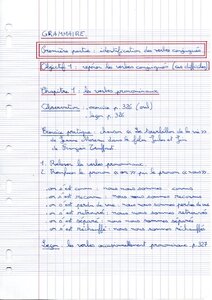 GRAMMAIRE
Première partie : identification des verbes conjugués
Objectif 1 : repérer les verbes conjugués (cas difficiles)
Chapitre 1 : les verbes pronominaux
Observation : exercice p. 326 (oral)
leçon p. 326
Exercice pratique : chanson « Le tourbillon de la vie »
de Jeanne Moreau dans le film Jules et Jim
de François Truffaut
1. Relever les verbes pronominaux.
2. Remplacer le pronom « on » par le pronom « nous ».
. on s'est connu : nous nous sommes connus
. on s'est reconnu : nous nous sommes reconnus
. on s'est perdu de vue : nous nous sommes perdus de vue
. on s'est retrouvé : nous nous sommes retrouvés
. on s'est séparé : nous nous sommes séparés
. on s'est réchauffé : nous nous sommes réchauffés
Leçon : les verbes occasionnellement pronominaux p. 327